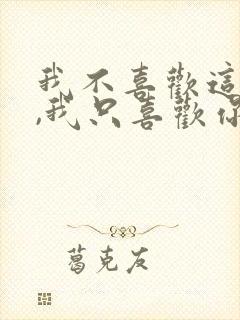 我不喜歡這
,我只喜歡你
葛克友